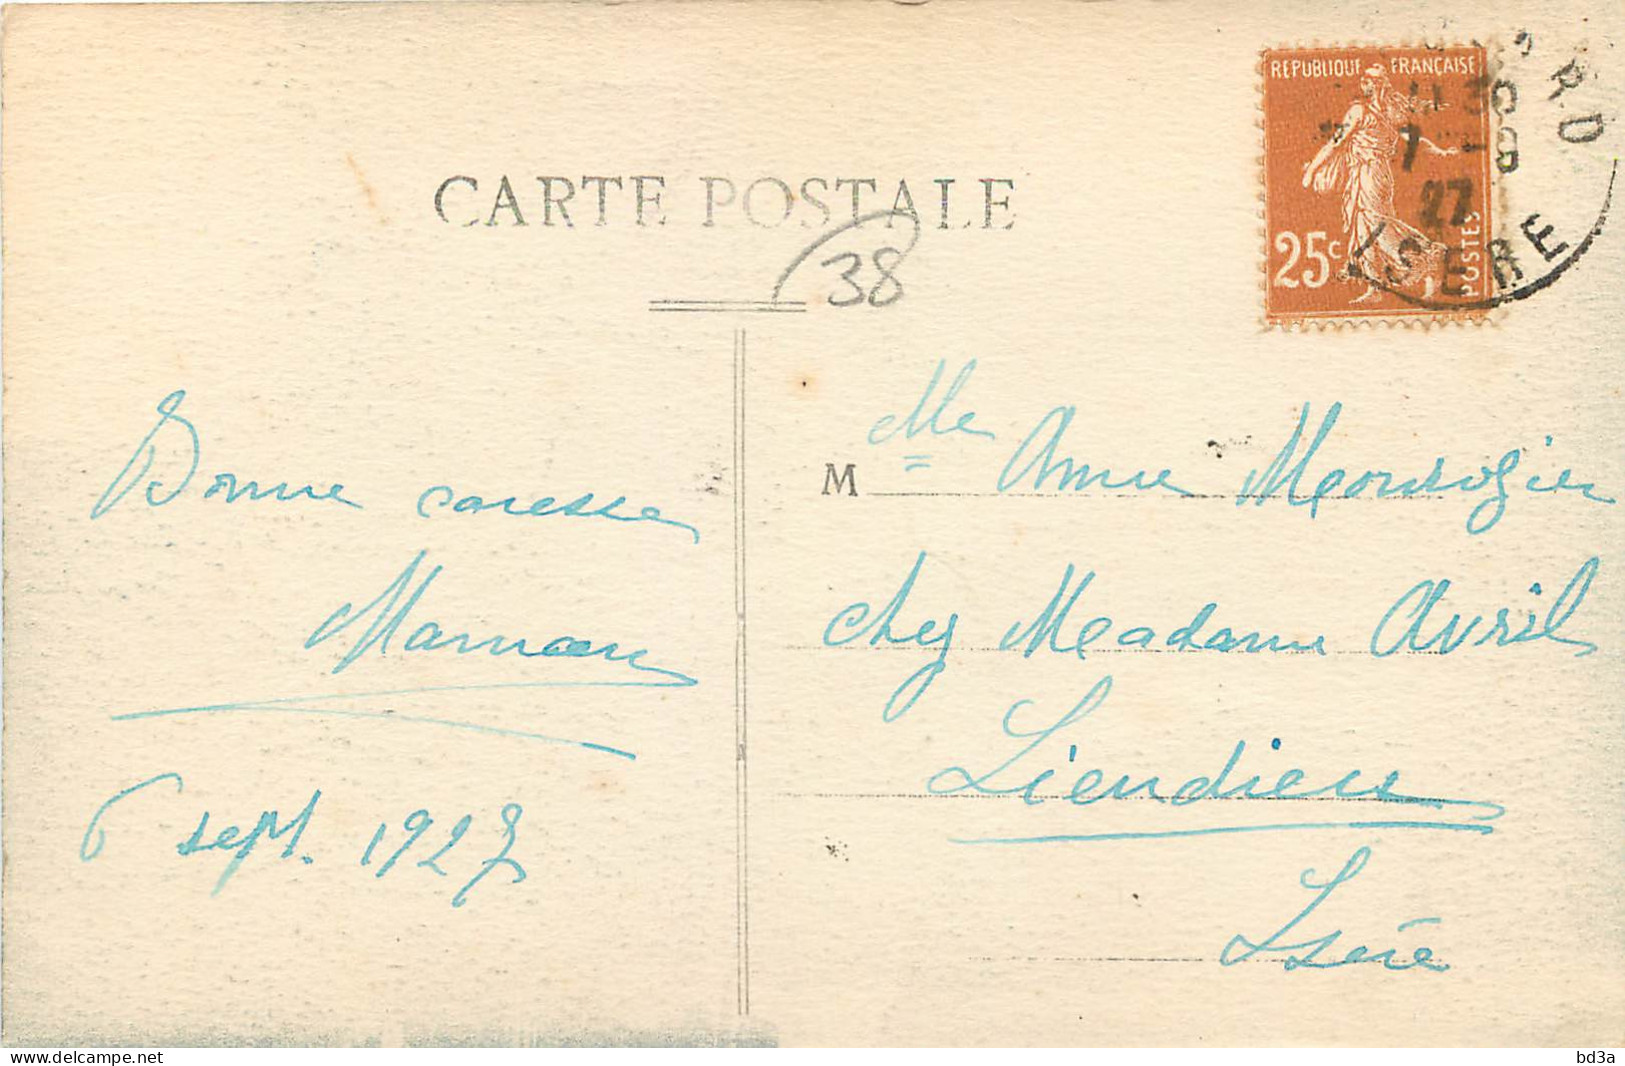 CARTE POSTALE
38
REPUBLIQUE FRANÇAISE
25c
POSTES
11 30
7 -9
27
ISERE
Bonne caresse
Maman
6 sept. 1927
M
Mlle Anne
chez Madame Avril
Liendieu
Isère
delcampe.net
bd3a